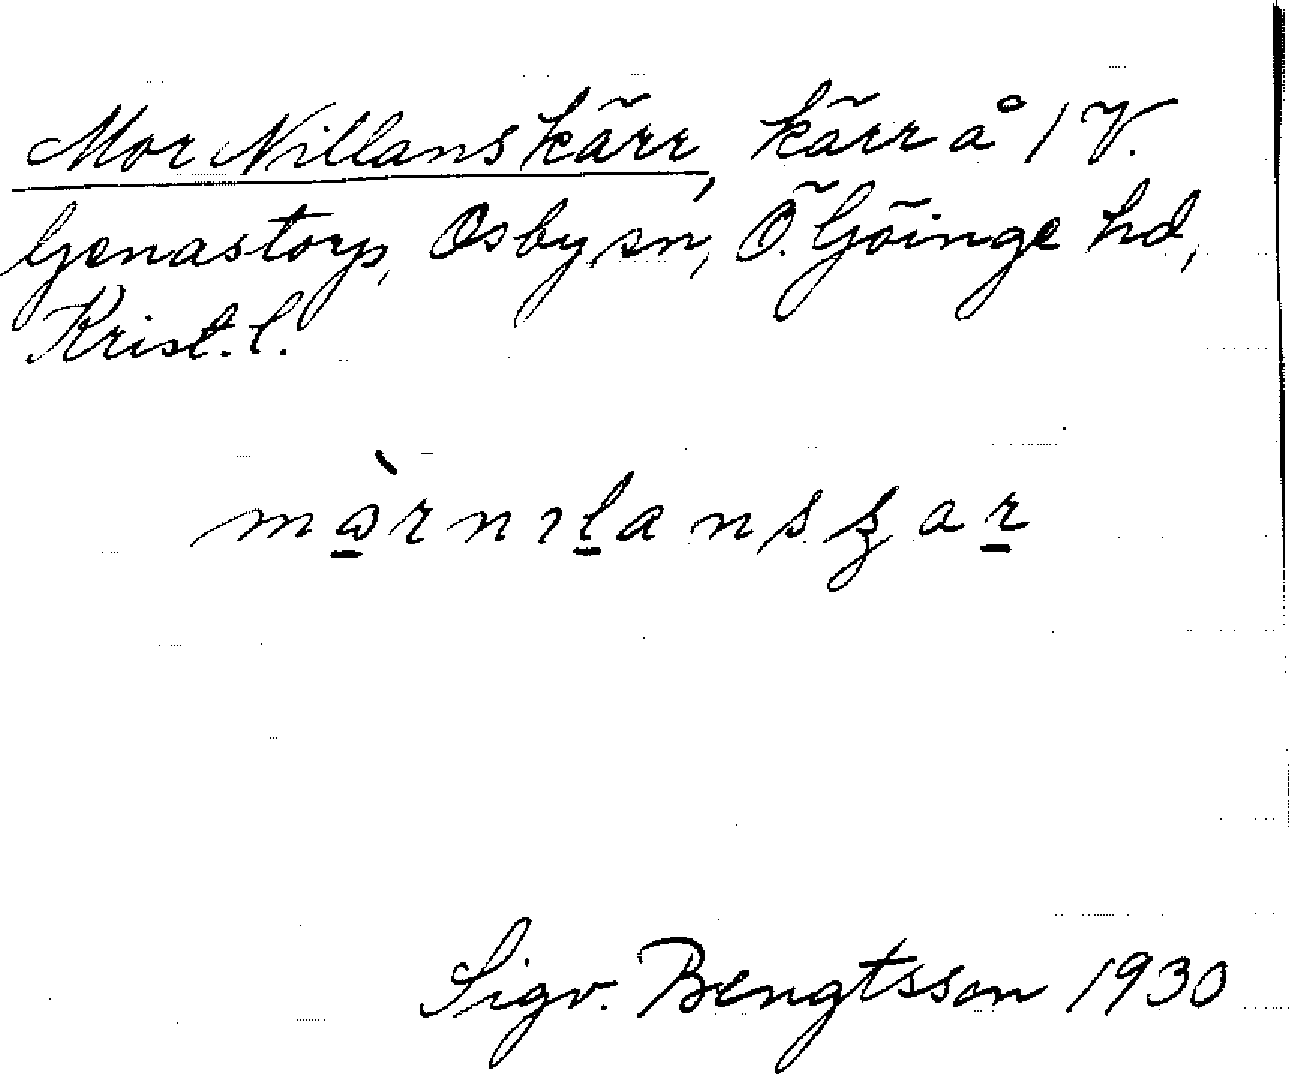 Mor Nillans kärr, kärr å 1 V.
Genastorp, Osby sn, Ö. Göinge hd,
Krist. l.
Sigv. Bengtsson 1930